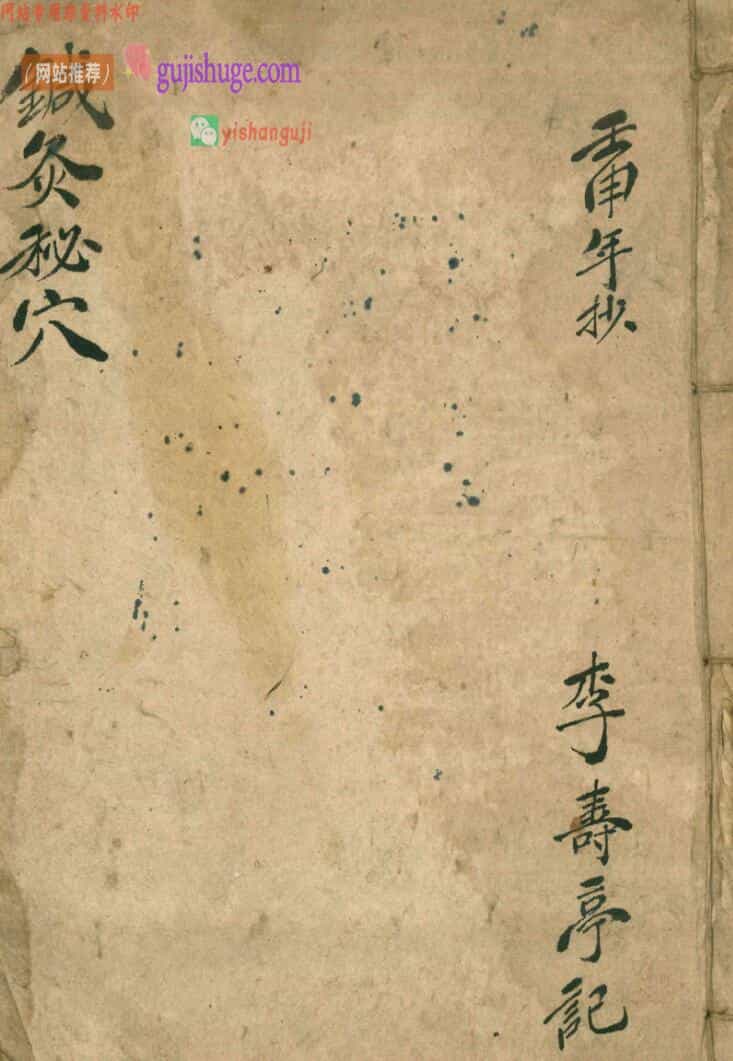 网站专用非资料水印
（网站推荐）
gujishuge.com
yishanguji
壬申年抄
李壽亭記
鍼灸秘穴